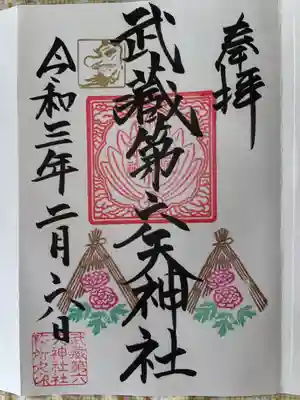 奉拝
武蔵第六天神社
令和三年二月六日
武蔵第六